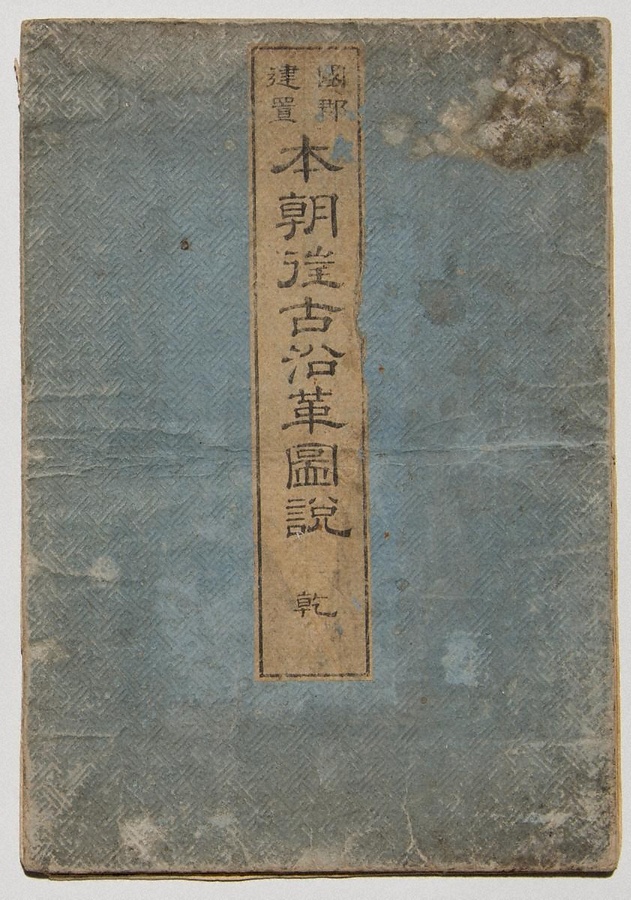 國郡
建置
本朝往古沿革圖說
乾